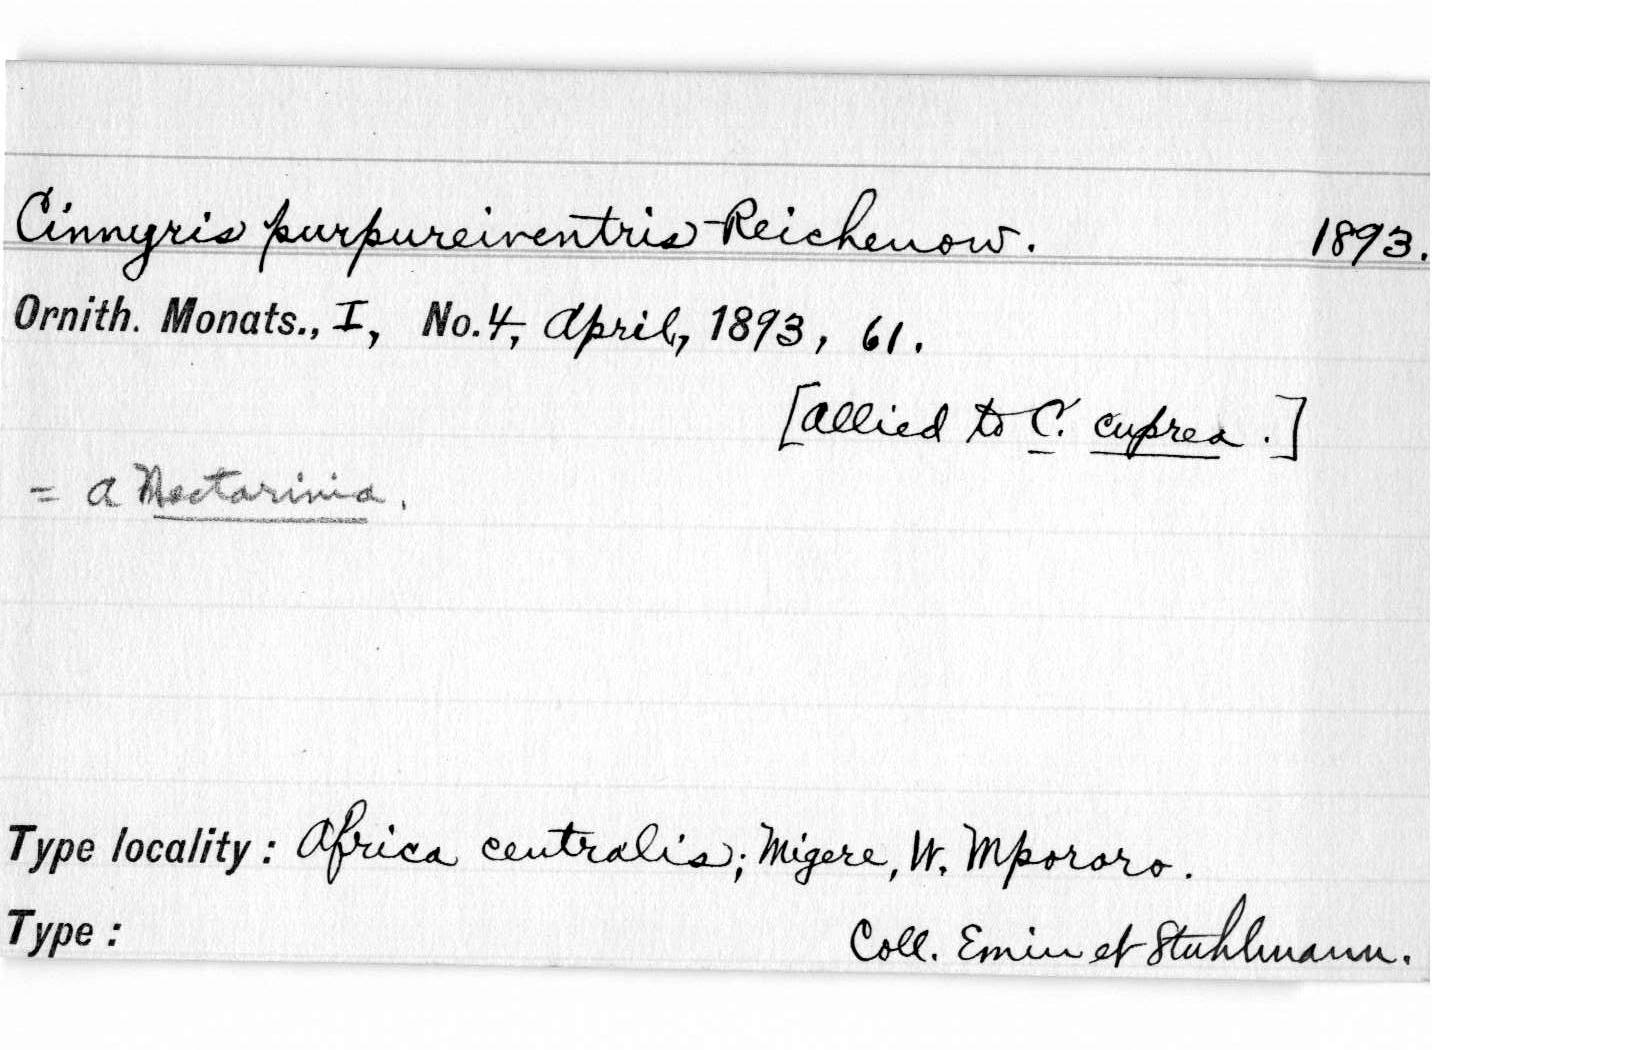 Cinnyris purpureiventris Reichenow. 1893.
Ornith. Monats., I, No. 4, April, 1893, 61.
[allied to C. cuprea.]
= a Nectarinia.
Type locality: Africa centralis; Migere, W. Mpororo.
Type: Coll. Emin et Stuhlmann.